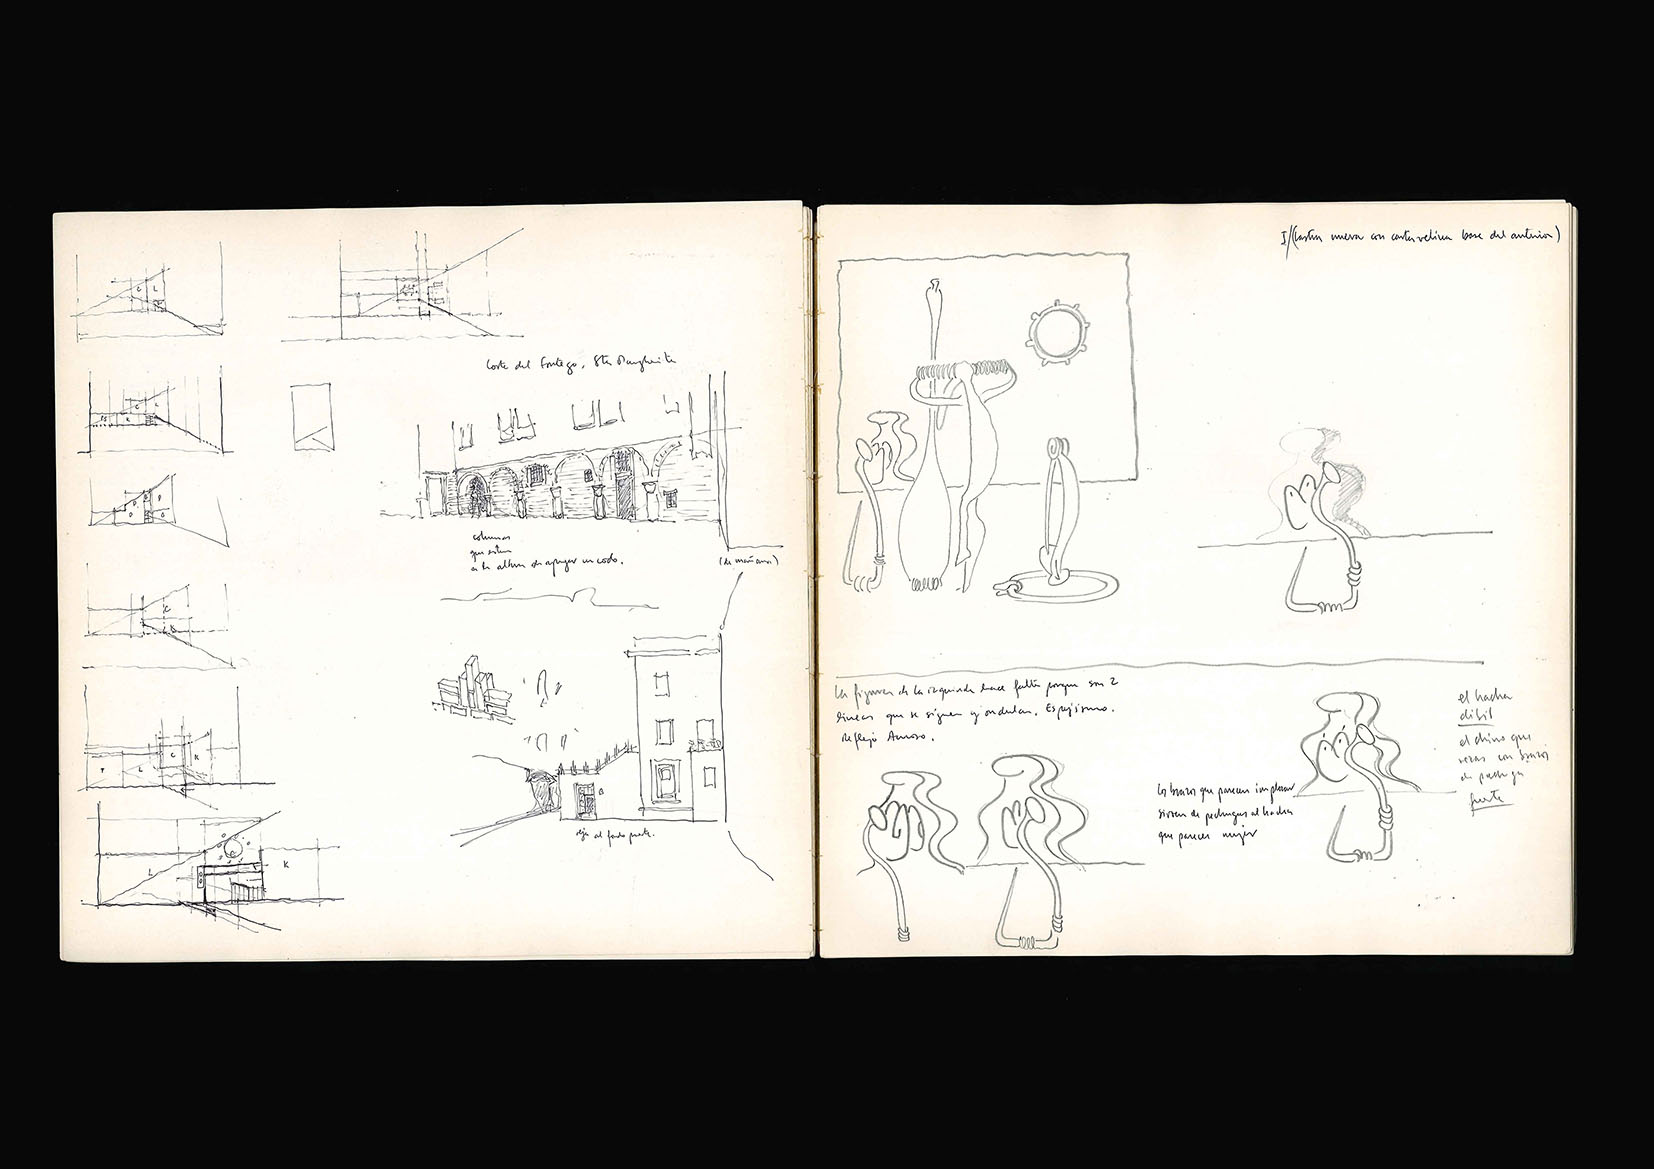 Corte del Fontego. Sta Margherita
columnas
que estan
a la altura de apoyar un codo.
(de mañana)
al fondo puerta.
I/(Cartón nuevo con carta velina base del anterior)
Las figuras de la izquierda hace falta porque son 2
lineas que se siguen y ondulan. Espejismo.
Reflejo Amoroso.
los brazos que parecen implorar
sirven de pechugas al hacha
que parece mujer
el hacha
débil
el chino que
rezas con brazos
de pechuga
fuerte
C L
C L
K
C
K
T L C K
L C K